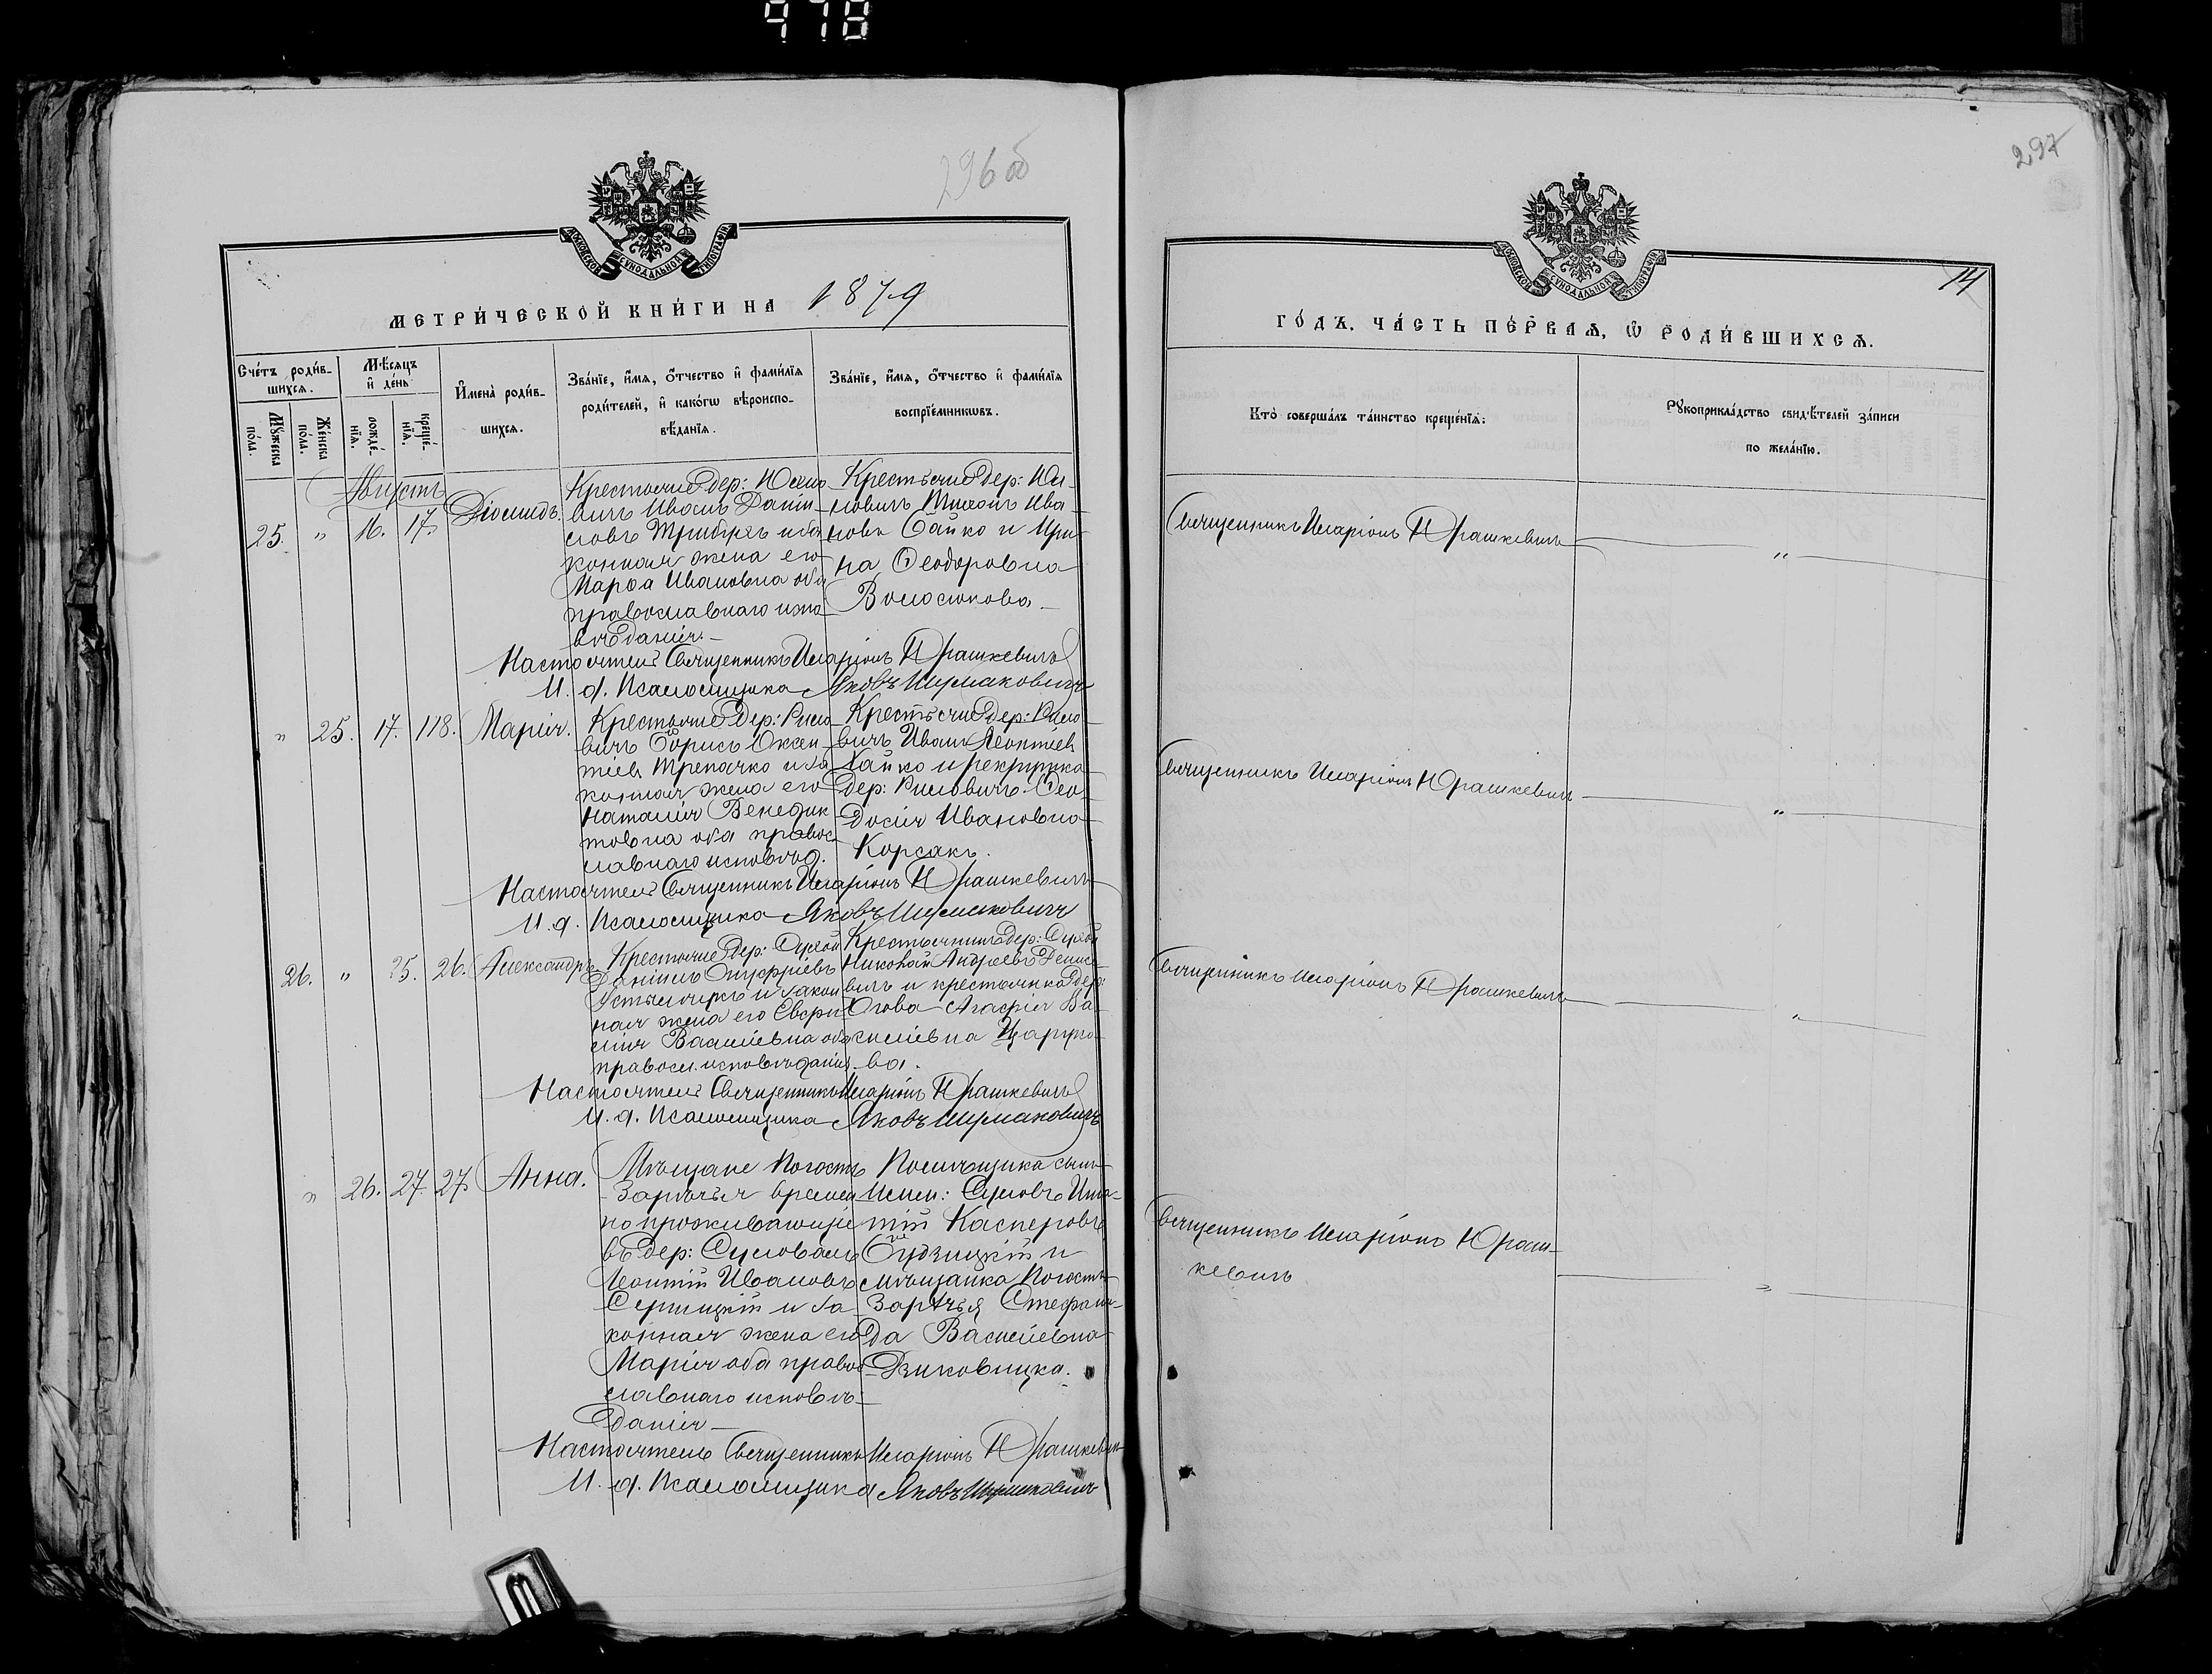 978
296 об
МОСКОВСКОЙ СѴНОДАЛЬНОЙ ТИПОГРАФІИ
МЕТРИ́ЧЕСКОЙ КНИ́ГИ НА 1879
Сче́тъ роди́в-
шихсѧ.
Мѣ́сѧцъ
и҆ де́нь
Мꙋ́жеска
по́ла.
Же́нска
по́ла.
рожде́-
нїѧ.
креще́-
нїѧ.
И҆мена̀ роди́в-
шихсѧ.
Зва́нїе, и҆́мѧ, ѻ҆́тчество и҆ фами́лїѧ
роди́телей, и҆ како́гѡ вѣроиспо-
вѣ́данїѧ.
Зва́нїе, и҆́мѧ, ѻ҆́тчество и҆ фами́лїѧ
воспрїе́мникѡвъ.
Августъ
25. " 16. 17.
Діомидъ.
Крестьяне дер:
вичъ Иванъ Даніи-
ловъ и за-
конная жена его
Марѳа Ивановна оба
православнаго испо-
вѣданія.
Крестьяне дер:
новичъ Тихонъ Ива-
новъ Байко и Ири-
на Ѳеодоровна
Волосюкова.
Настоятель Священникъ Иларіонъ Юрашкевичъ
И. д. Псаломщика Яковъ Шумаковичъ
" 25. 17. 118. Марія.
Крестьяне дер:
вичъ Борисъ Оксен-
тіевъ Трепачко и за-
конная жена его
Наталія Венедик-
товна оба правос-
лавнаго исповѣд.
Крестьяне дер:
вичъ Иванъ Леонтіев
Хайко и рекрутка
дер: Ѳео-
досія Ивановна
Корсакъ.
Настоятель Священникъ Иларіонъ Юрашкевичъ
И. д. Псаломщика Яковъ Шумаковичъ
26. " 25. 26. Александръ
Крестьяне дер:
Даніилъ Онуфріевъ
и закон-
ная жена его Евфи-
мія Василіевна оба
правосл. исповѣданія
Крестьянинъ дер:
Николай Андреевъ Дени-
вичъ и крестьянка дер:
Огова Агафія Ва-
силіевна
ва.
Настоятель Священникъ Иларіонъ Юрашкевичъ
И. д. Псаломщика Яковъ Шумаковичъ
" 26. 27. 27. Анна.
Мѣщане Погость
Зарѣчья времен-
но проживающіе
въ дер:
Леонтій Ивановъ
и за-
конная жена его
Марія оба право-
славнаго исповѣ-
данія
Помѣщика сынъ
имен: Игна-
тій Касперовъ
Будзицкій и
мѣщанка Погость
Зарѣчья Стефани-
да Василіевна
Дзиковицка.
Настоятель Священникъ Иларіонъ Юрашкевичъ
И. д. Псаломщика Яковъ Шумаковичъ
297
14
МОСКОВСКОЙ СѴНОДАЛЬНОЙ ТИПОГРАФІИ
ГО́ДЪ, ЧА́СТЬ ПЕ́РВАѦ, Ѡ҆ РОДИ́ВШИХСѦ.
Кто̀ соверша́лъ та́инство креще́нїѧ:
Рꙋкоприкла́дство свидѣ́телей за́писи
по жела́нїю.
Священникъ Иларіонъ Юрашкевичъ "
Священникъ Иларіонъ Юрашкевичъ "
Священникъ Иларіонъ Юрашкевичъ "
Священникъ Иларіонъ Юраш-
кевичъ "